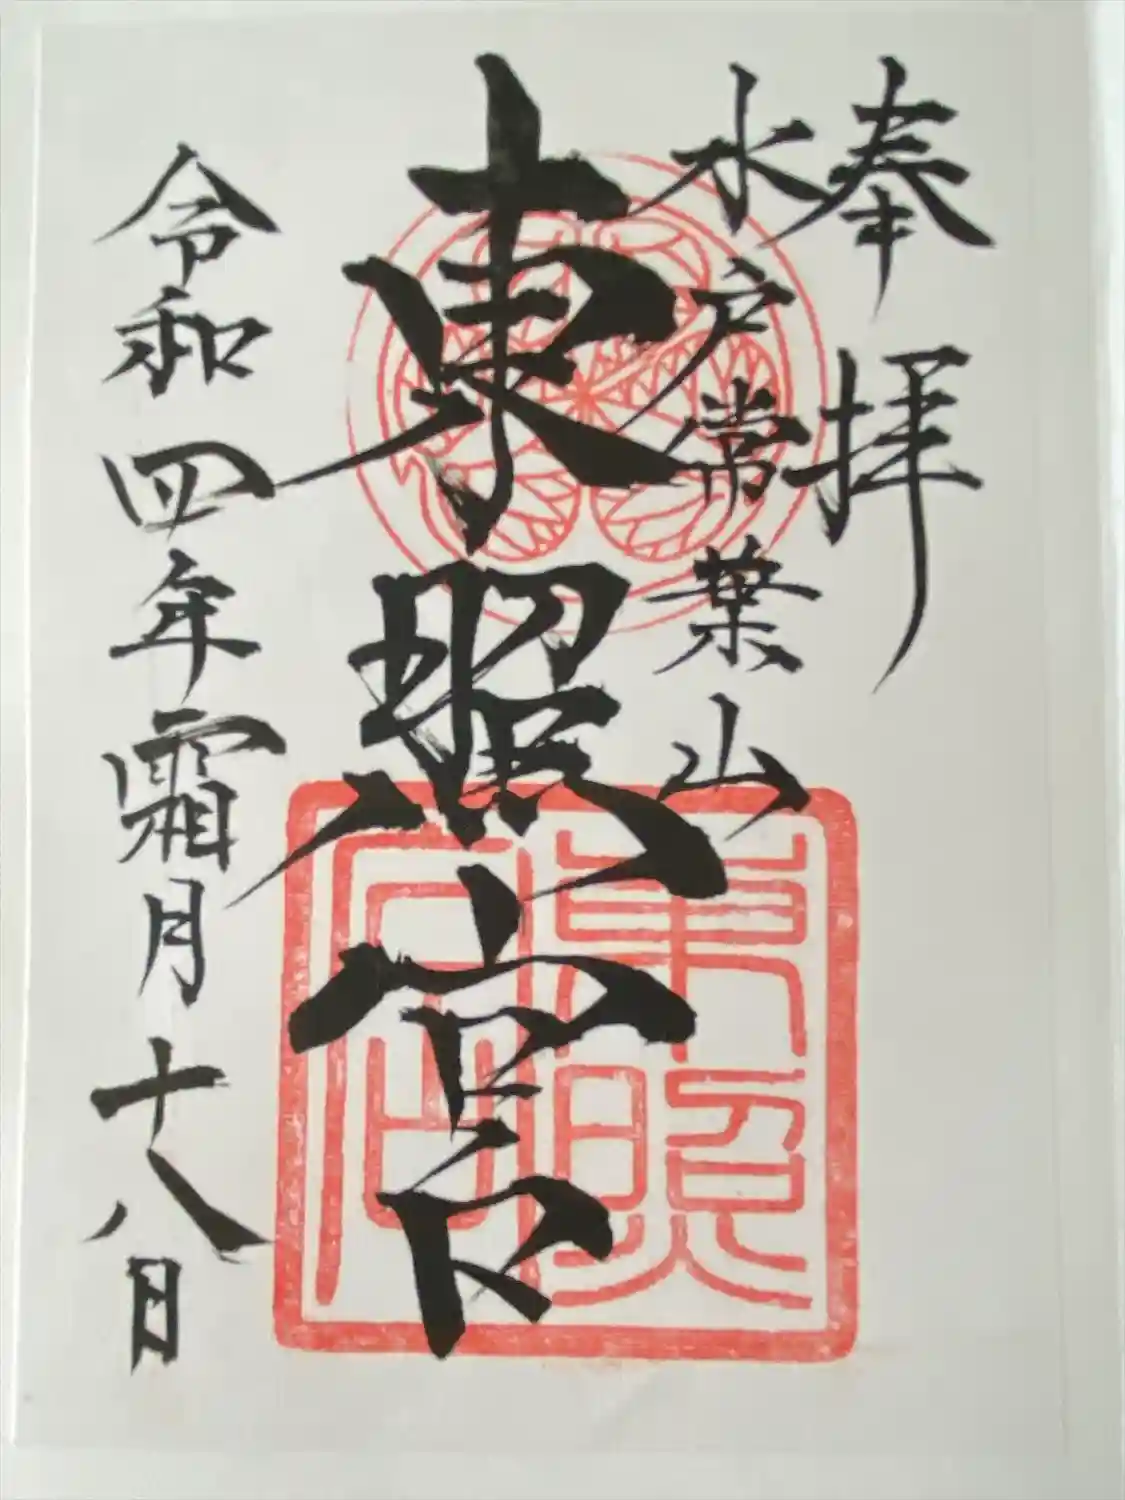 奉拝
水戸常葉山
東照宮
令和四年霜月十八日
東照
宮